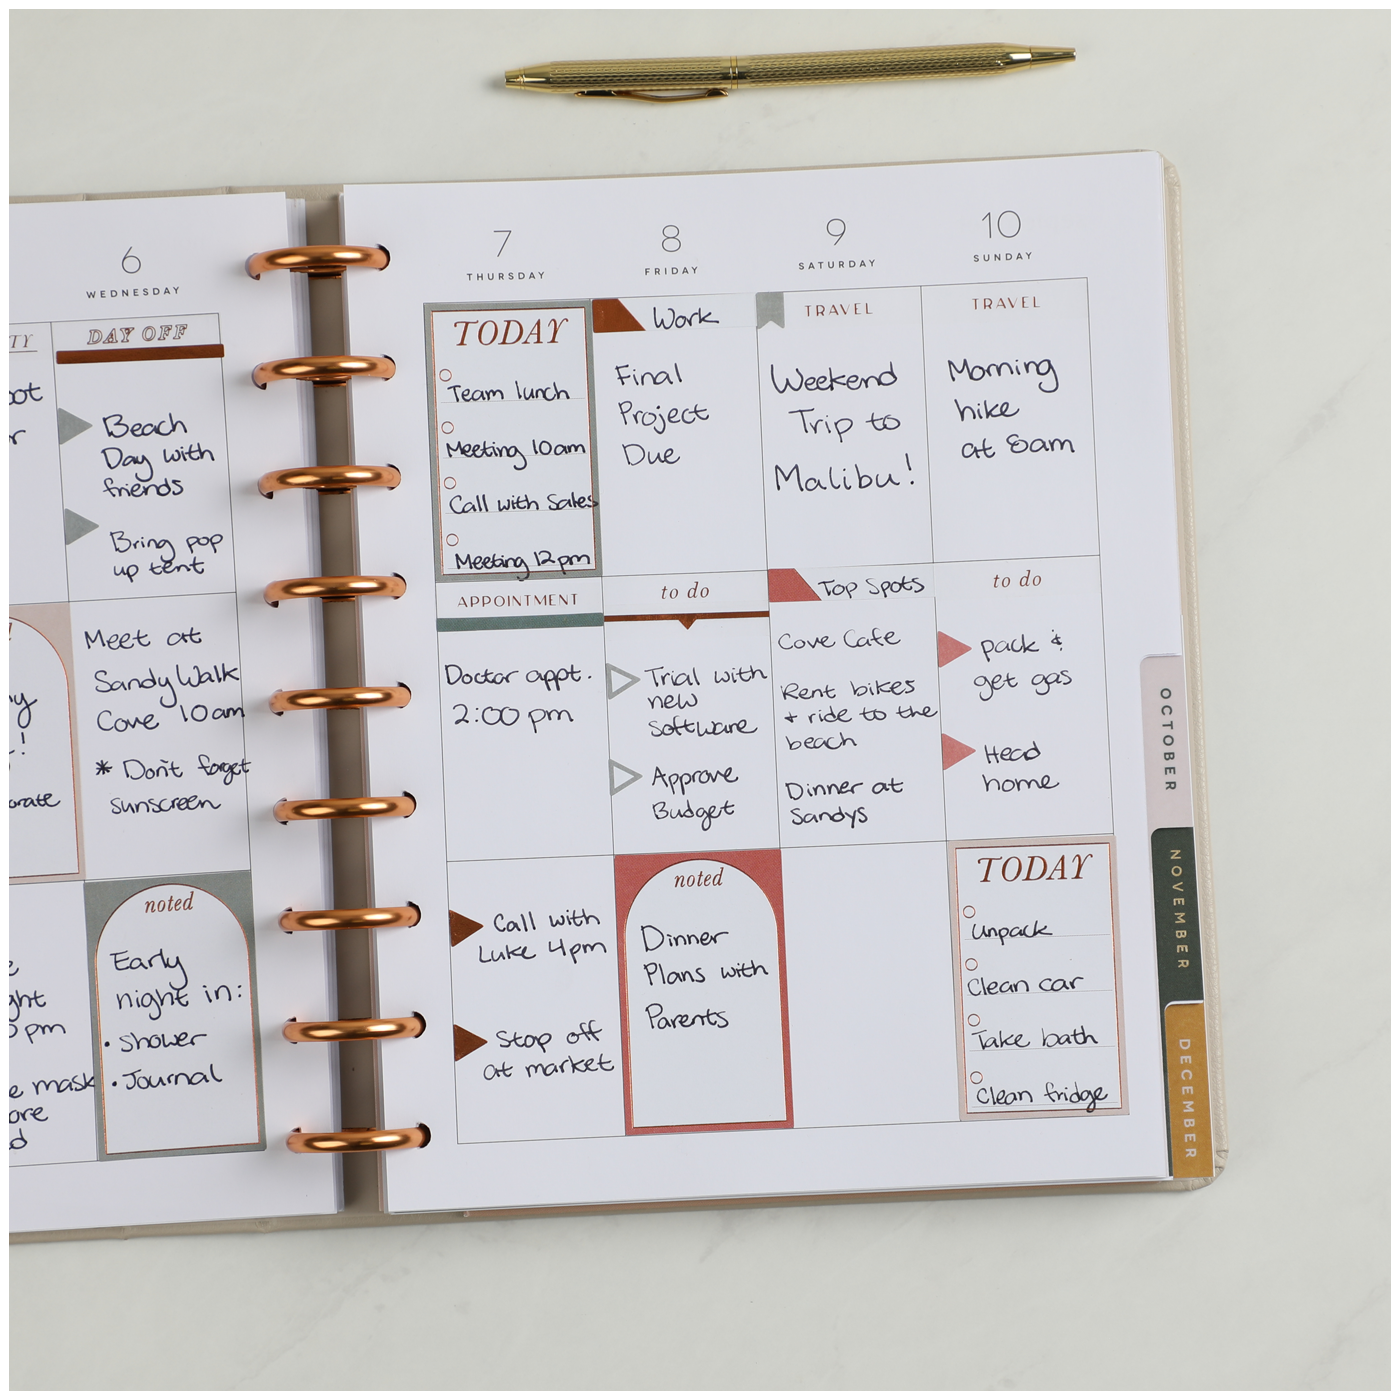 6
WEDNESDAY
DAY OFF
Beach
Day with
friends
Bring pop
up tent
Meet at
Sandy Walk
Cove 10am
* Don't forget
sunscreen
noted
Early
night in:
• Shower
• Journal
7
THURSDAY
TODAY
Team lunch
Meeting 10am
Call with Sales
Meeting 12pm
APPOINTMENT
Doctor appt.
2:00 pm
Call with
Luke 4pm
Stop off
at market
8
FRIDAY
Work
Final
Project
Due
to do
Trial with
new
Software
Approve
Budget
noted
Dinner
Plans with
Parents
9
SATURDAY
TRAVEL
Weekend
Trip to
Malibu!
Top Spots
Cove Cafe
Rent bikes
+ ride to the
beach
Dinner at
Sandys
10
SUNDAY
TRAVEL
Morning
hike
at 8am
to do
pack &
get gas
Head
home
TODAY
Unpack
Clean car
Take bath
Clean fridge
OCTOBER
NOVEMBER
DECEMBER